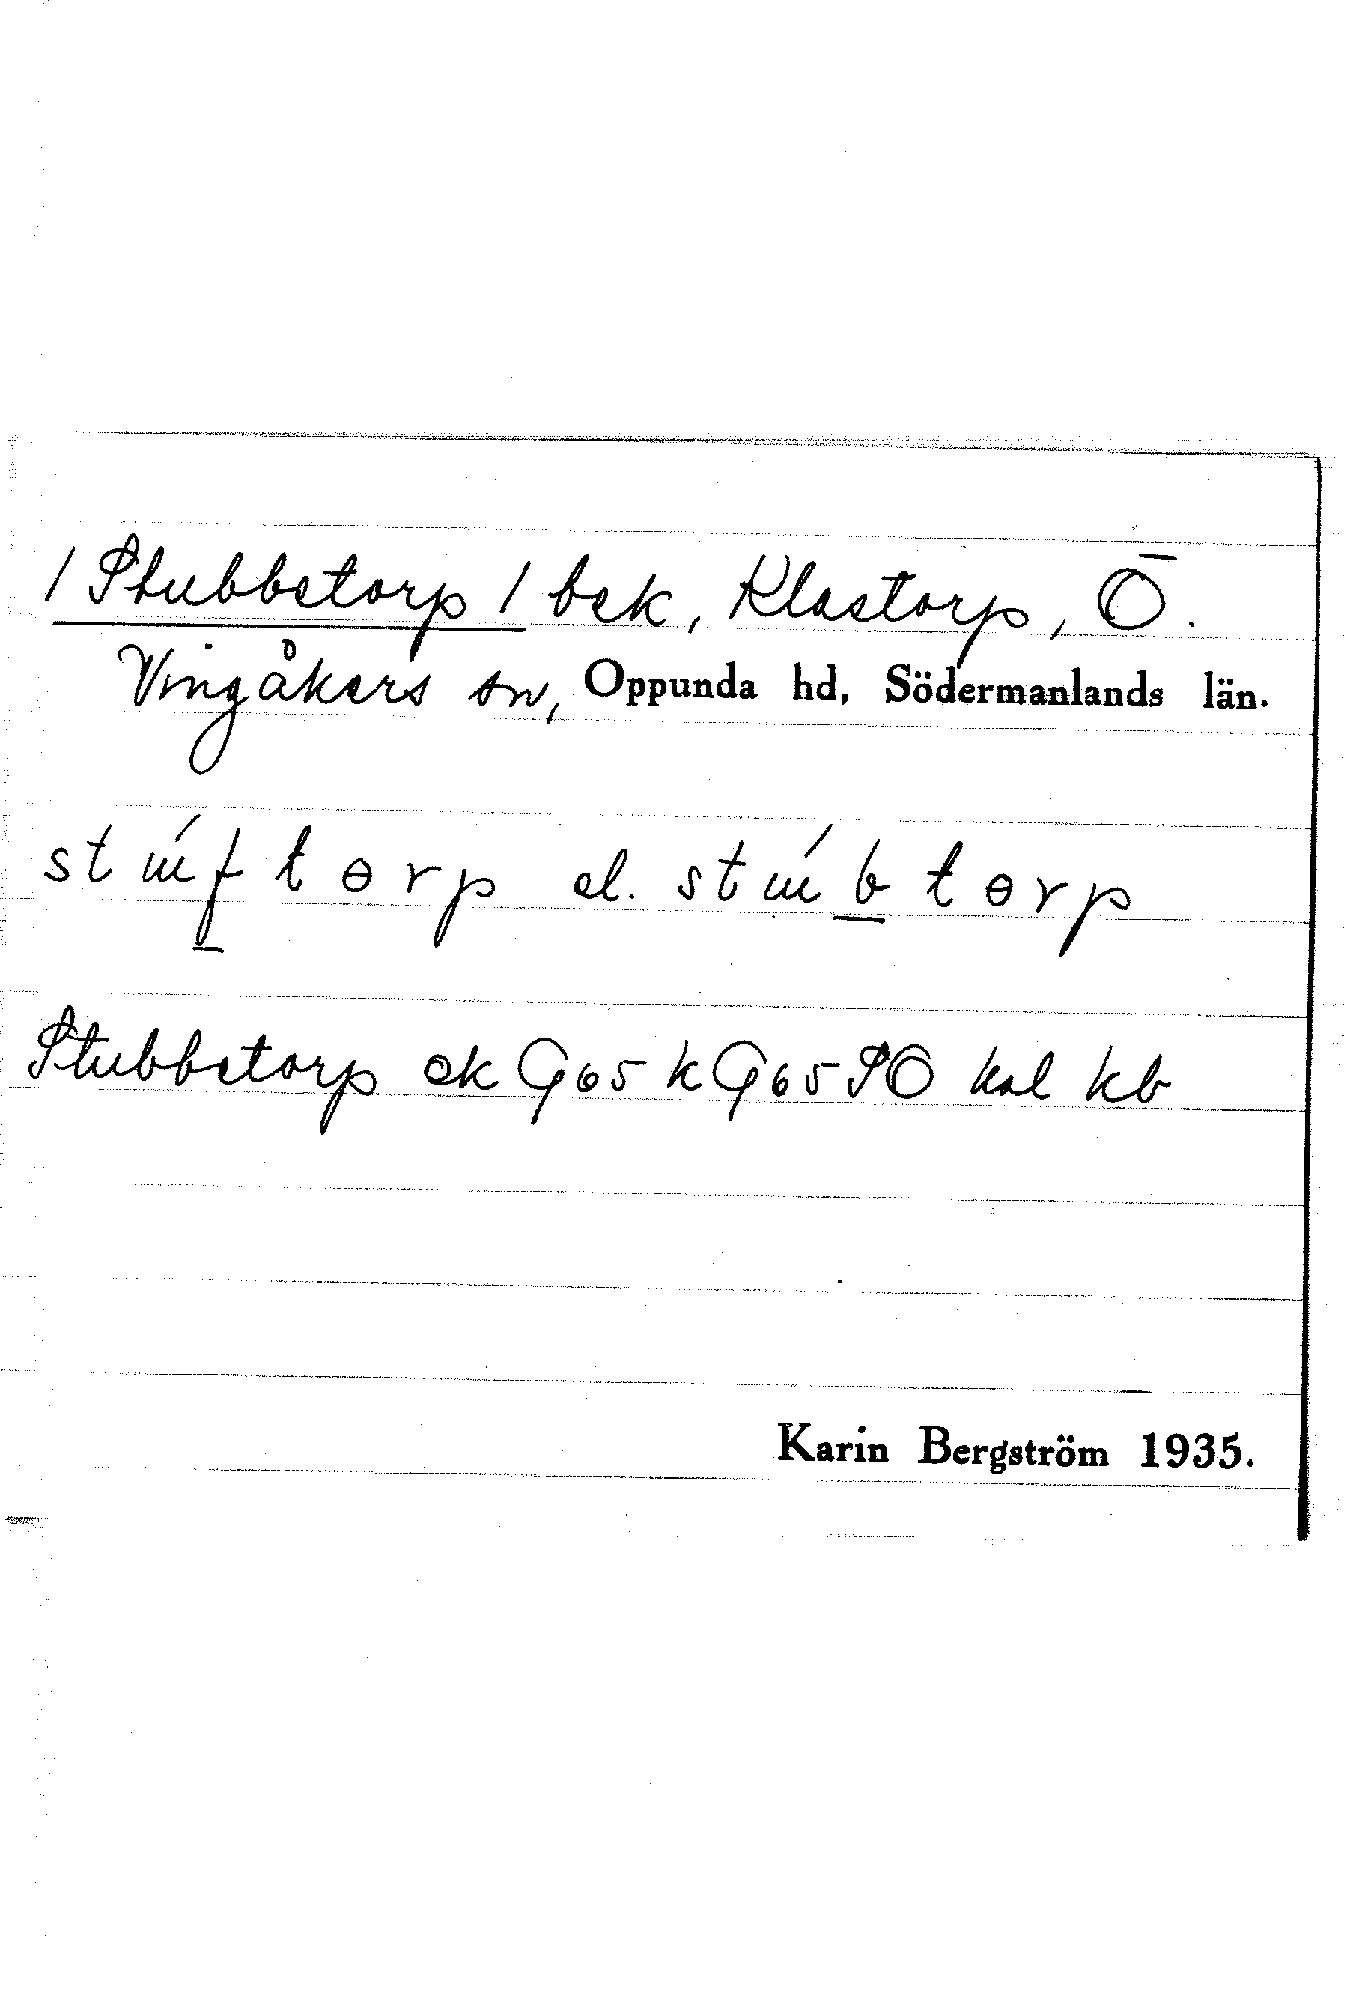 / Stubbetorp / bek, Klastorp, Ö.
Vingåkers sn, Oppunda hd, Södermanlands län.
stúf torp el. stúb torp
Stubbetorp ek G65 k G65 SO hal kb
Karin Bergström 1935.